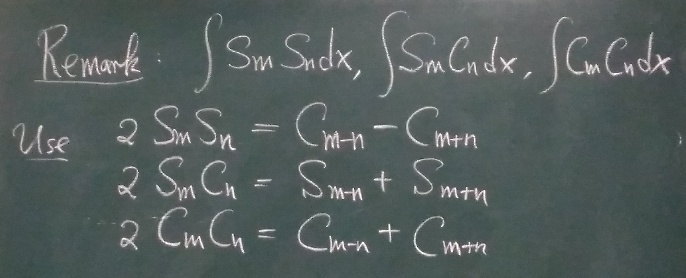 Remark: ∫ Sm Sn dx, ∫ Sm Cn dx, ∫ Cm Cn dx
Use 2 Sm Sn = Cm-n - Cm+n
2 Sm Cn = Sm-n + Sm+n
2 Cm Cn = Cm-n + Cm+n